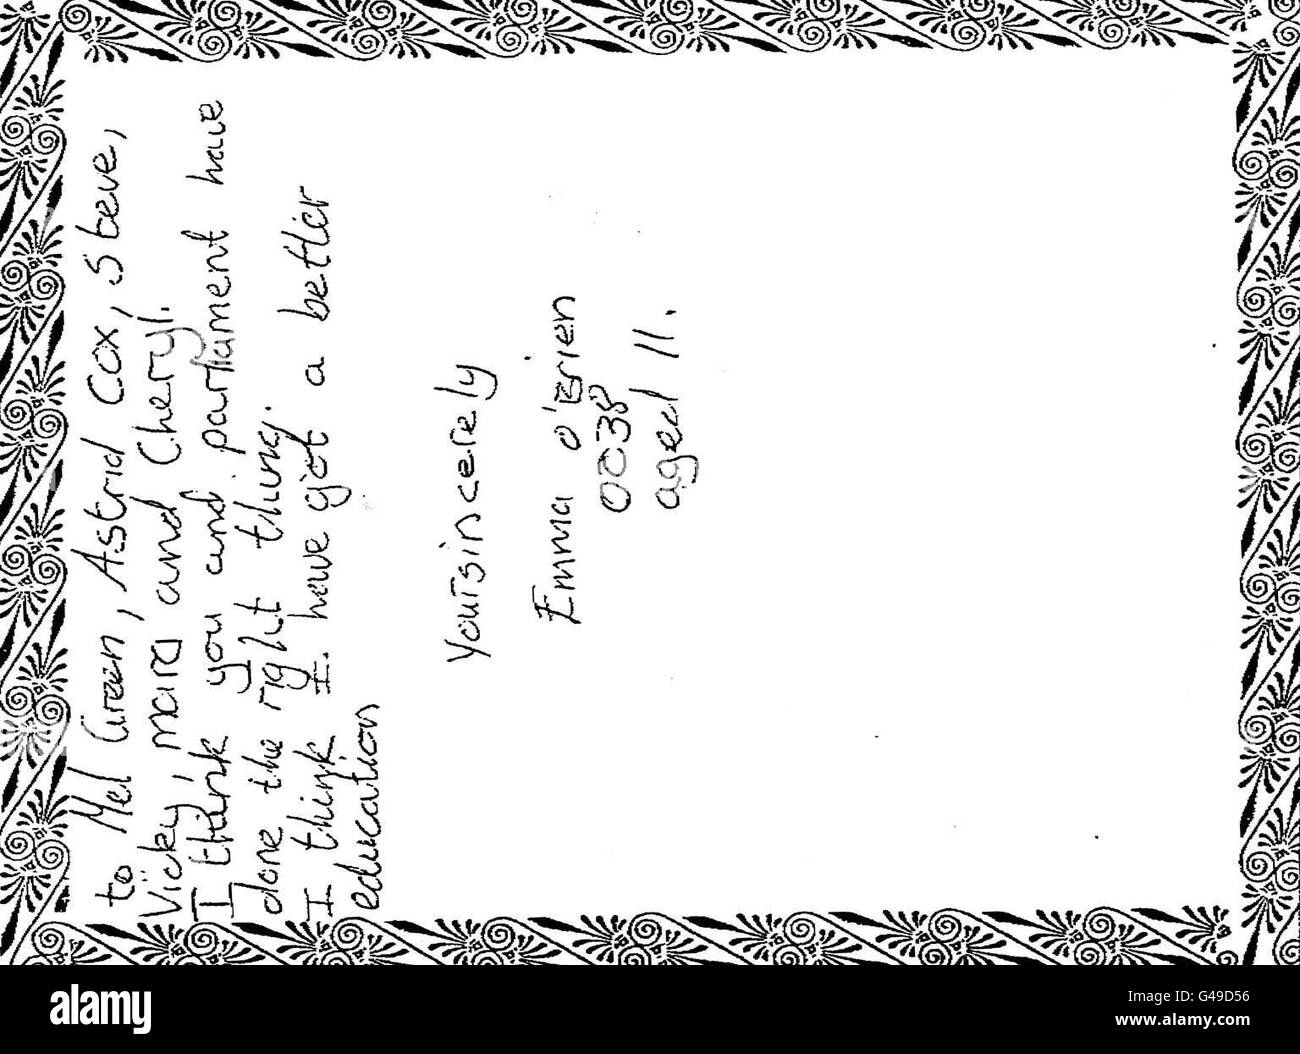 to Mel Green, Astrid Cox, Steve,
Vicky, maira and Cheryl.
I think you and parliament have
done the right thing.
I think I have got a better
education
Yoursincerely
Emma o'Brien
0038
aged 11.
alamy
Image ID: G49D56
www.alamy.com